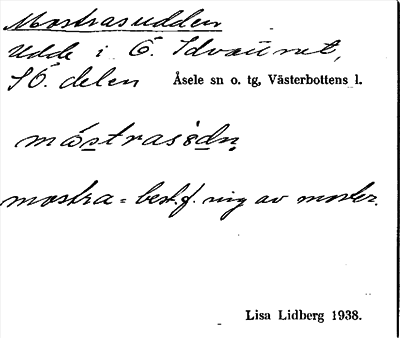 Mostrasudden
Udde i Ö. Idvattnet,
SÖ. delen Åsele sn o. tg, Västerbottens l.
mostra = best.f. sing av moster.
Lisa Lidberg 1938.